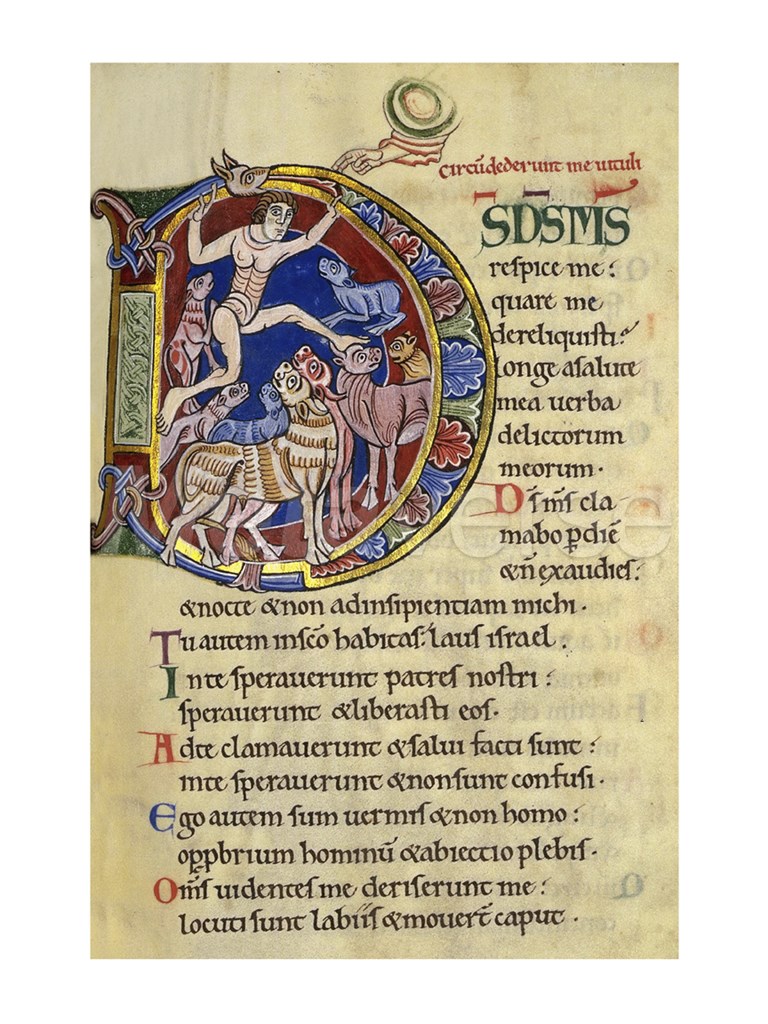 Circūdederunt me uituli
DS DS MS
respice me:
quare me
dereliquisti?
longe asalute
mea uerba
delictorum
meorum.
Ds̄ ms̄ cla
mabo ꝑ diē
&n̄ exaudies:
&nocte &non adinsipientiam michi.
Tu autem insc̄o habitas: laus israel.
In te sperauerunt patres nostri:
sperauerunt &liberasti eos.
Adte clamauerunt &salui facti sunt:
inte sperauerunt &nonsunt confusi.
Ego autem sum uermis &non homo:
opꝓbrium hominū &abiectio plebis.
Om̄s uidentes me deriserunt me:
locuti sunt labiis &mouer̄t caput.